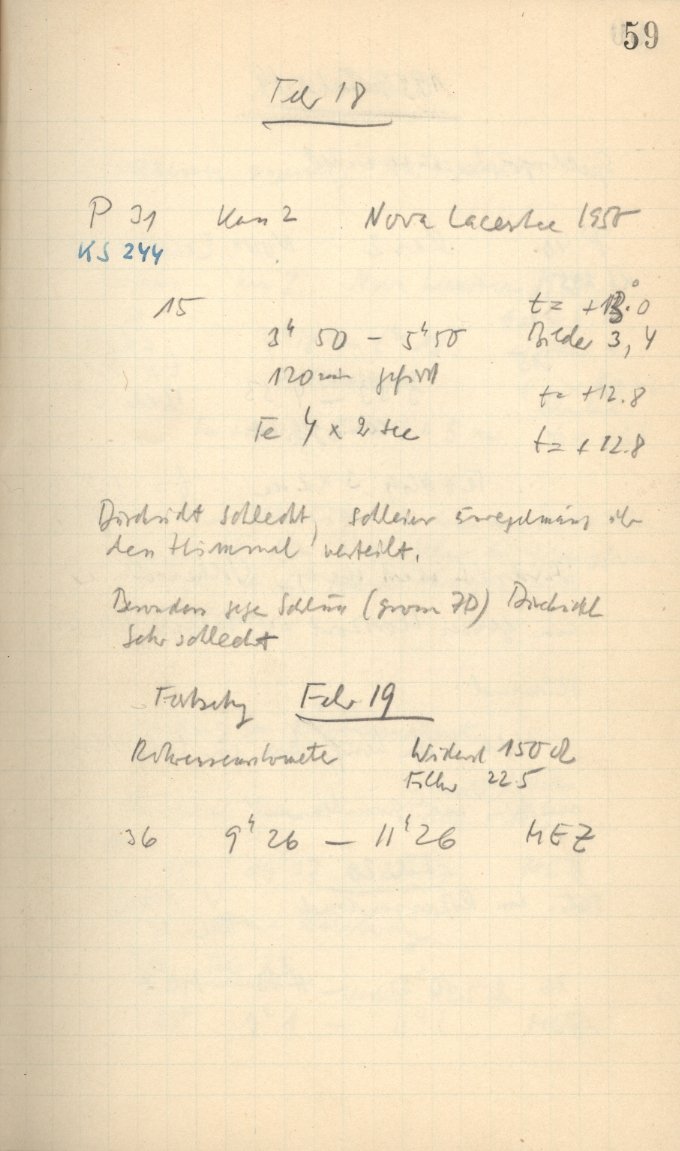 59
Febr 18
P 31 Kass 2 Nova Lacertae 1950
KS 244
15 t = +13.°0
3h 50 – 5h 50 Bilder 3, 4
120 min geführt
t = +12.8
Te 4 x 2 sec t = +12.8
Durchsicht schlecht, Schleier unregelmäss über
den Himmel verteilt.
Besonders gegen Schluss (grosse ZD) Durchsicht
sehr schlecht
Febr 19
Röhrensensitometer Widerst 150 Ω
Filter 225
36 9h 26 – 11h 26 MEZ